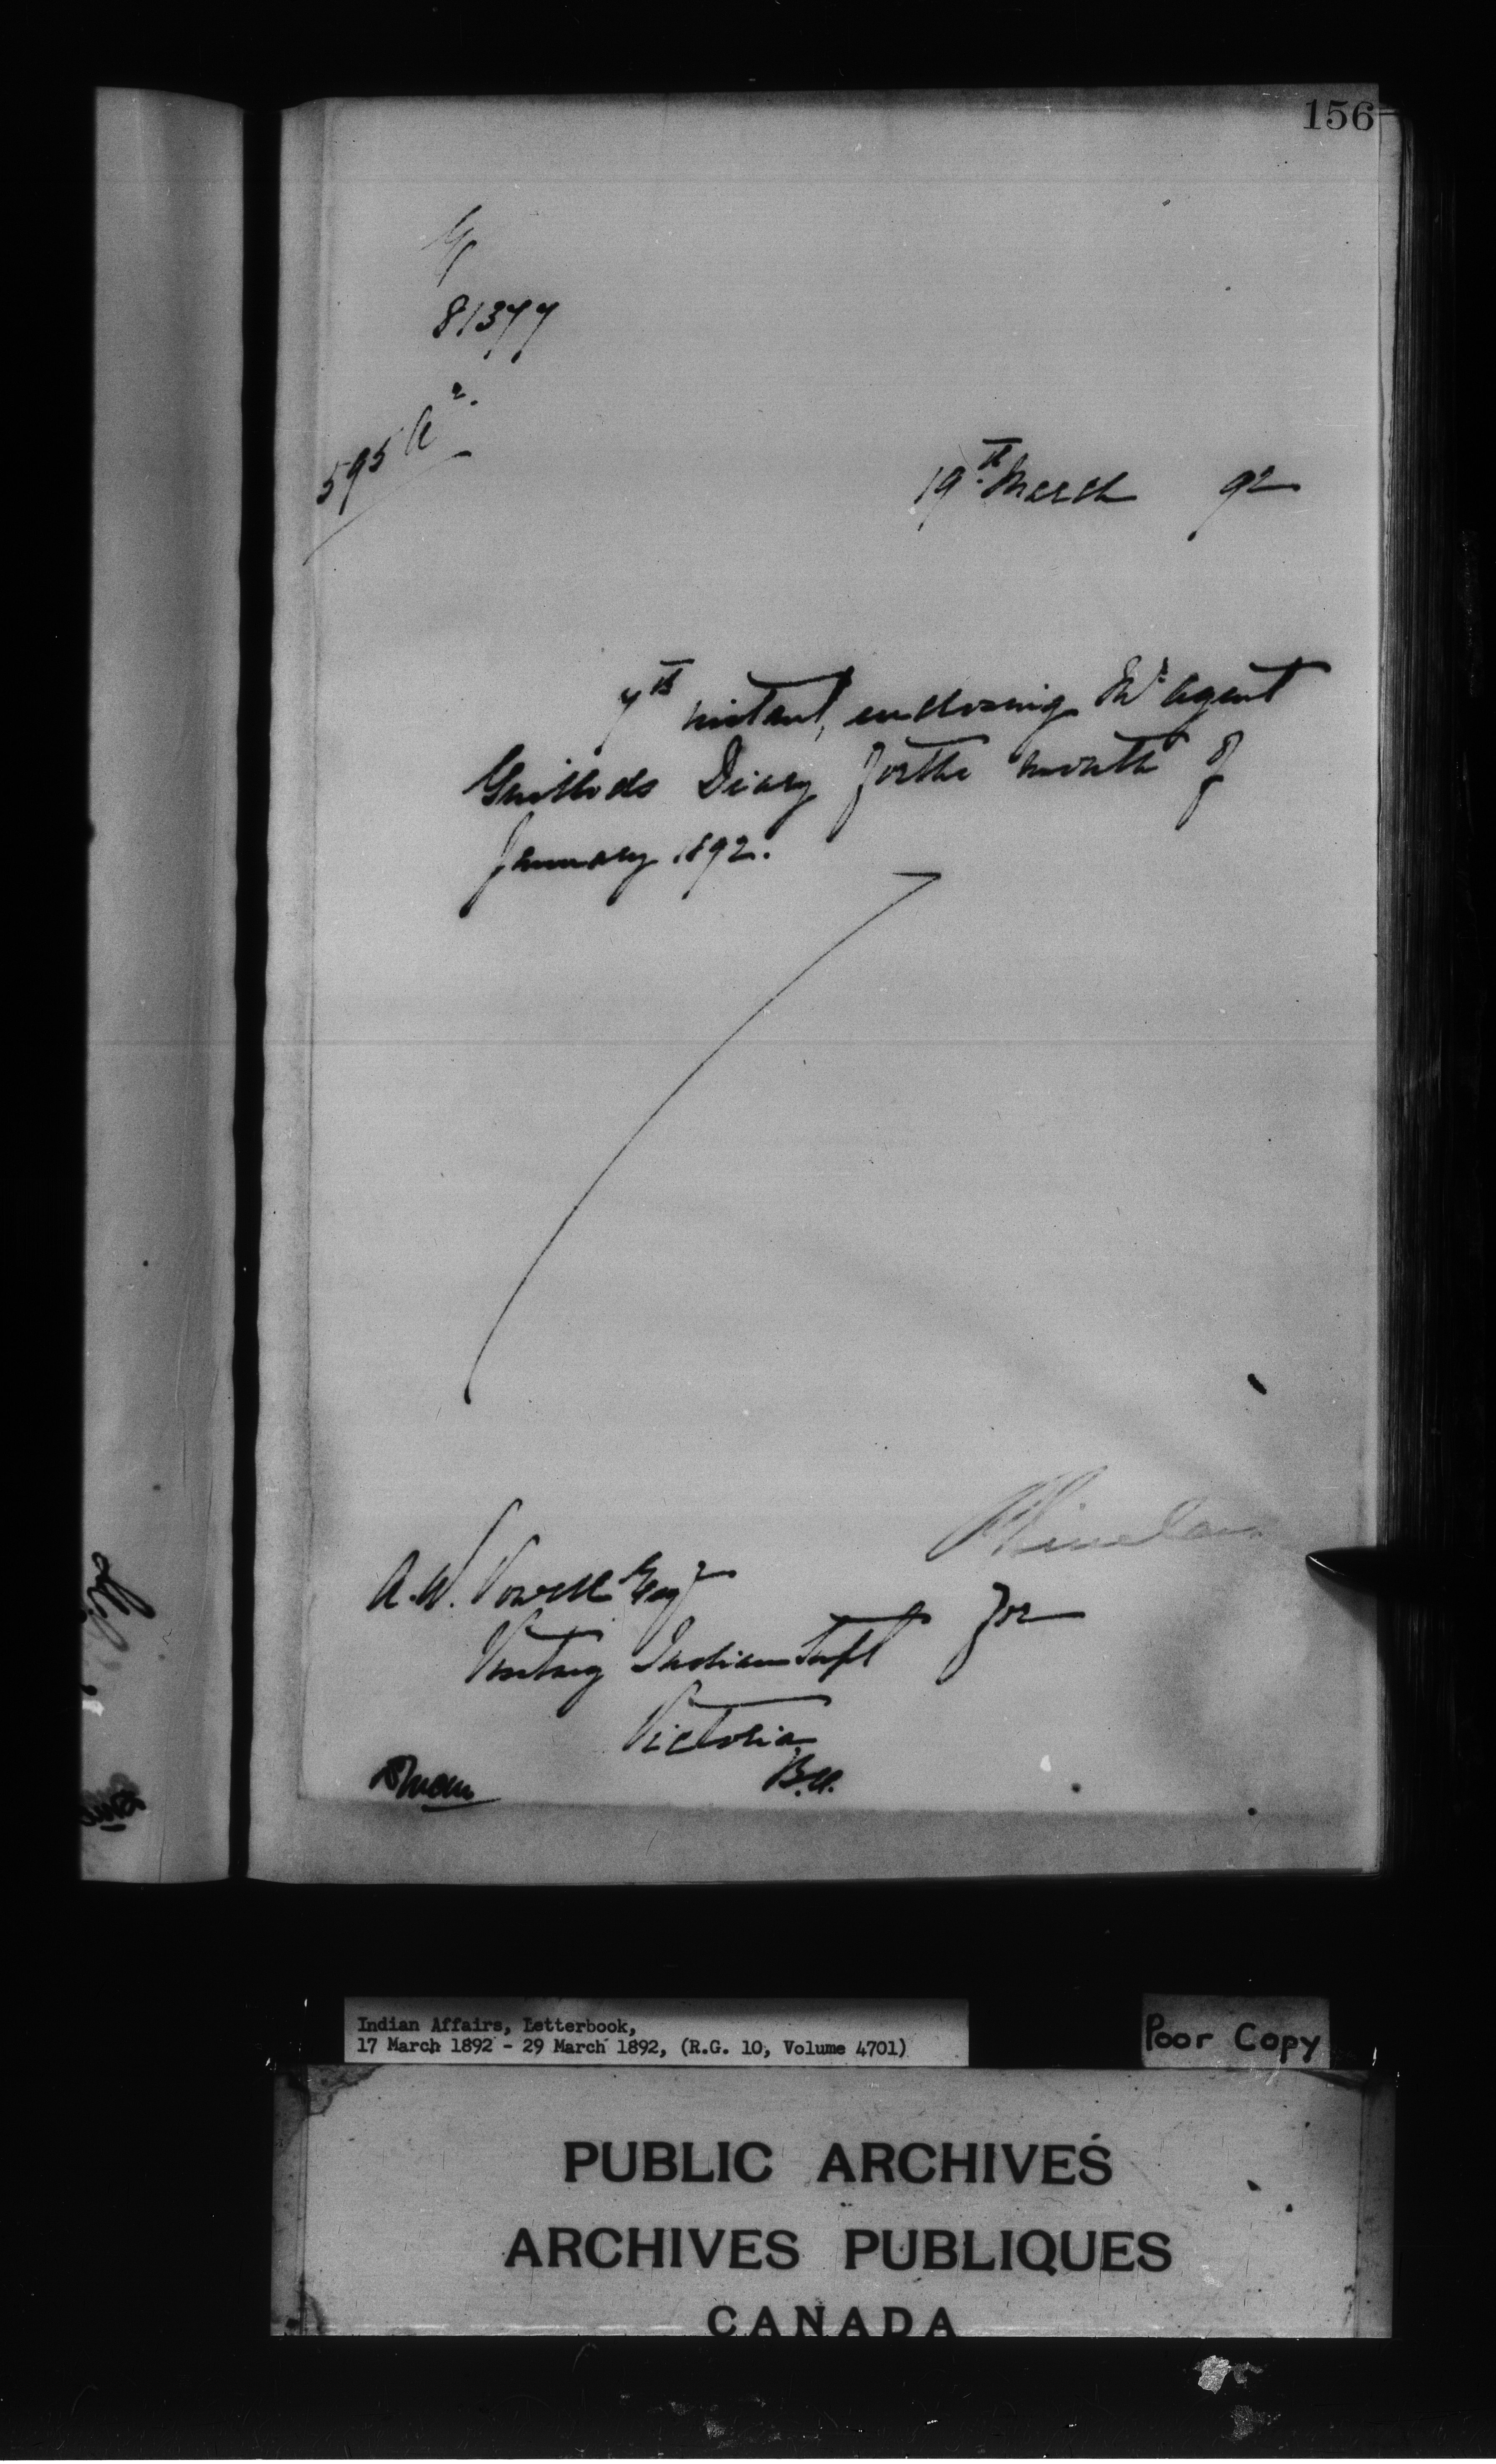 156
81377
595 A².
19th March 92
7th instant, enclosing Mr Agent
Guillods Diary for the month of
January 1892.
A.W. Vowell Esqr
Visiting Indian Supt
for
Victoria
B.C.
Indian Affairs, Letterbook,
17 March 1892 - 29 March 1892, (R.G. 10, Volume 4701)
Poor Copy
PUBLIC ARCHIVES
ARCHIVES PUBLIQUES
CANADA